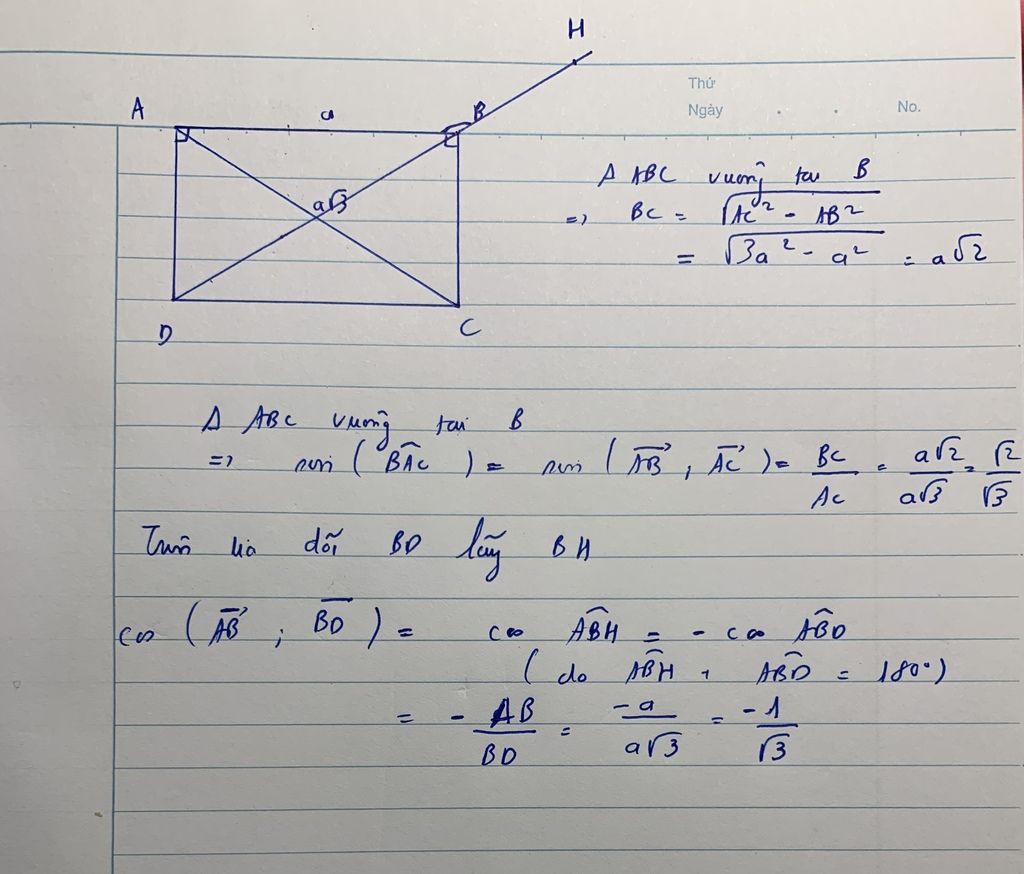 H
Thứ
Ngày . . No.
A a B
a√3
D C
Δ ABC vuông tại B
=> BC = √(AC² - AB²)
= √(3a² - a²) = a√2
Δ ABC vuông tại B
=> sin (BAC) = sin (AB, AC) = BC/AC = a√2/a√3 = √2/√3
Trên tia đối BD lấy BH
cos (AB ; BD) = cos ABH = - cos ABD
(do ABH + ABD = 180°)
= - AB/BD = -a/a√3 = -1/√3